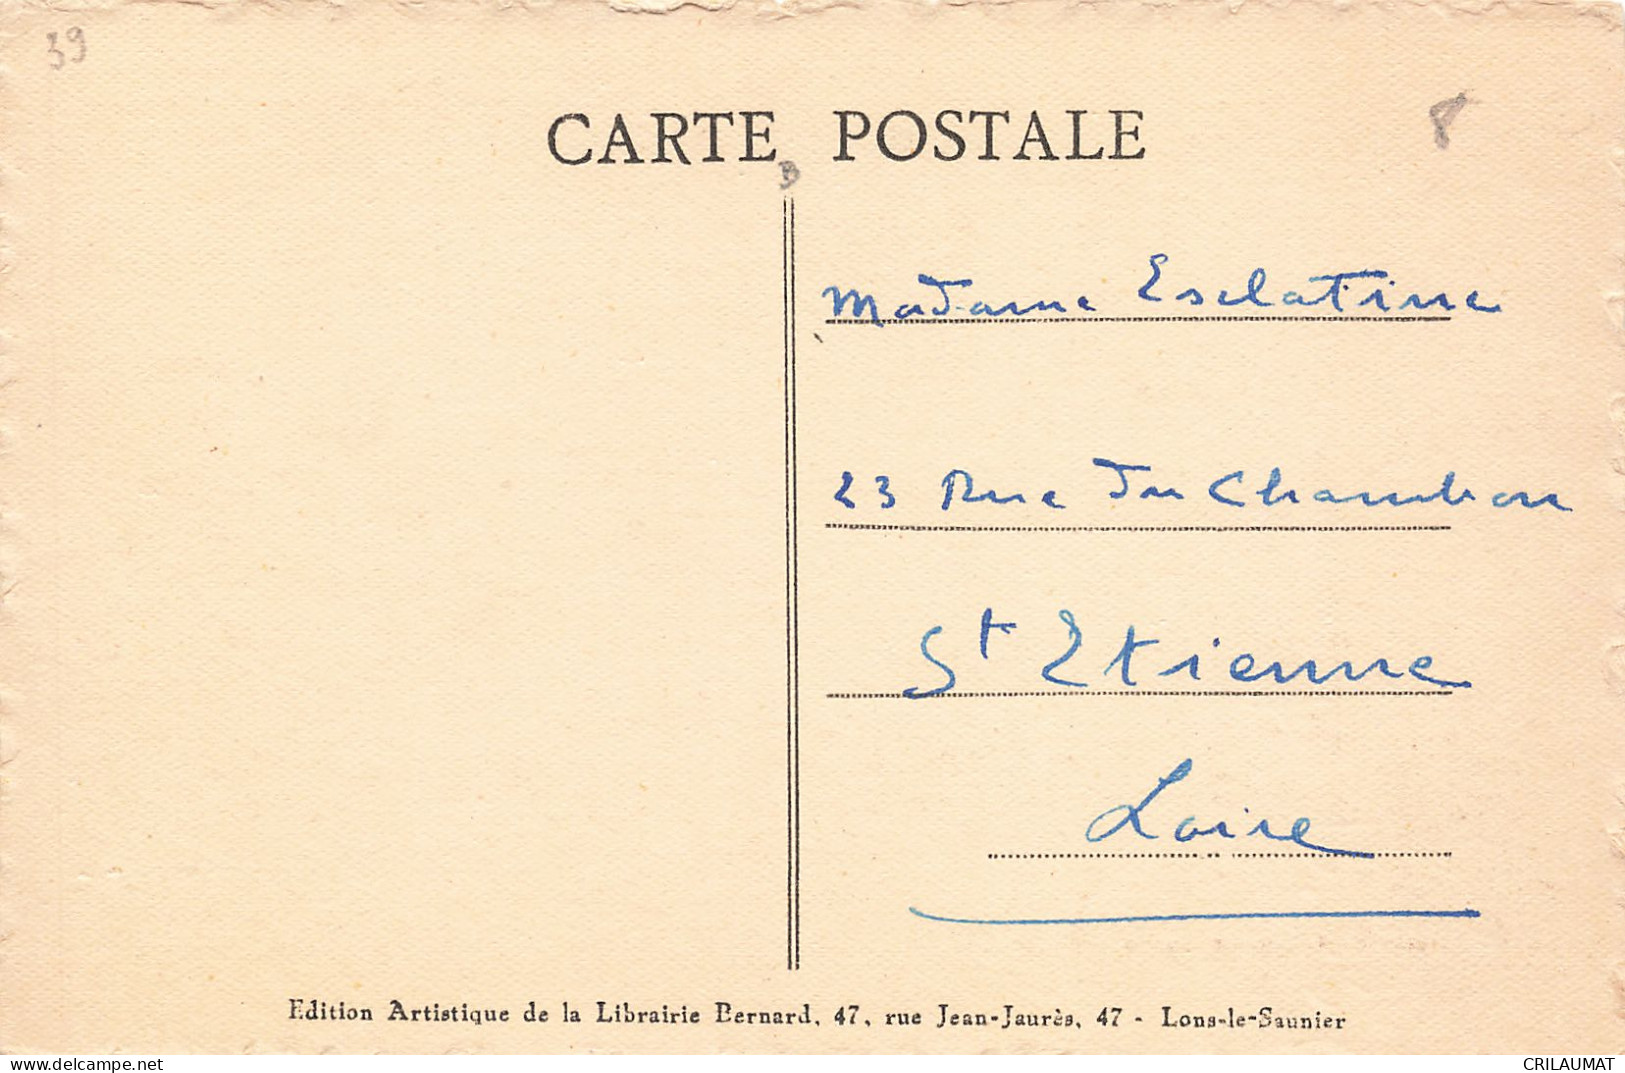 39
CARTE POSTALE
8
B
Madame Esclatine
23 Rue du Chambon
St Etienne
Loire
Edition Artistique de la Librairie Bernard, 47, rue Jean-Jaurès, 47 - Lons-le-Saunier
CRILAUMAT